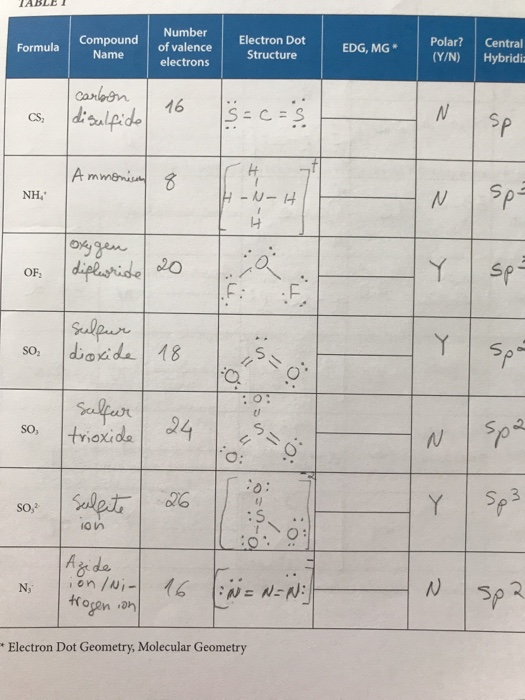 TABLE 1
Formula Compound Name Number of valence electrons Electron Dot Structure EDG, MG* Polar? (Y/N) Central
CS₂ carbon disulfide 16 S = C = S N sp
NH₄⁺ Ammonium 8 H H - N - H H + N sp³
OF₂ oxygen difluoride 20 O F F Y sp³
SO₂ sulfur dioxide 18 S O O Y sp²
SO₃ sulfur trioxide 24 O S O O N sp²
SO₃²⁻ Sulfite ion 26 O S O O Y sp³
N₃⁻ Azide ion / Ni-trogen ion 16 N = N = N N sp2
* Electron Dot Geometry, Molecular Geometry